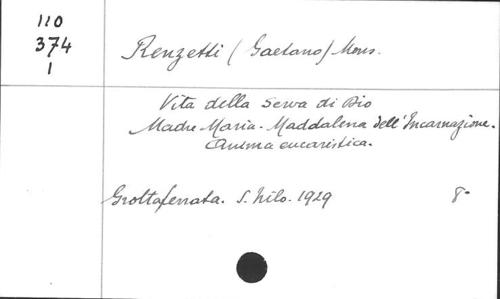 110
374
1
Renzetti (Gaetano) Mons.
Vita della Serva di Dio
Madre Maria-Maddalena dell'Incarnazione.
Anima eucaristica.
Grottaferrata. S. Nilo. 1929 8°